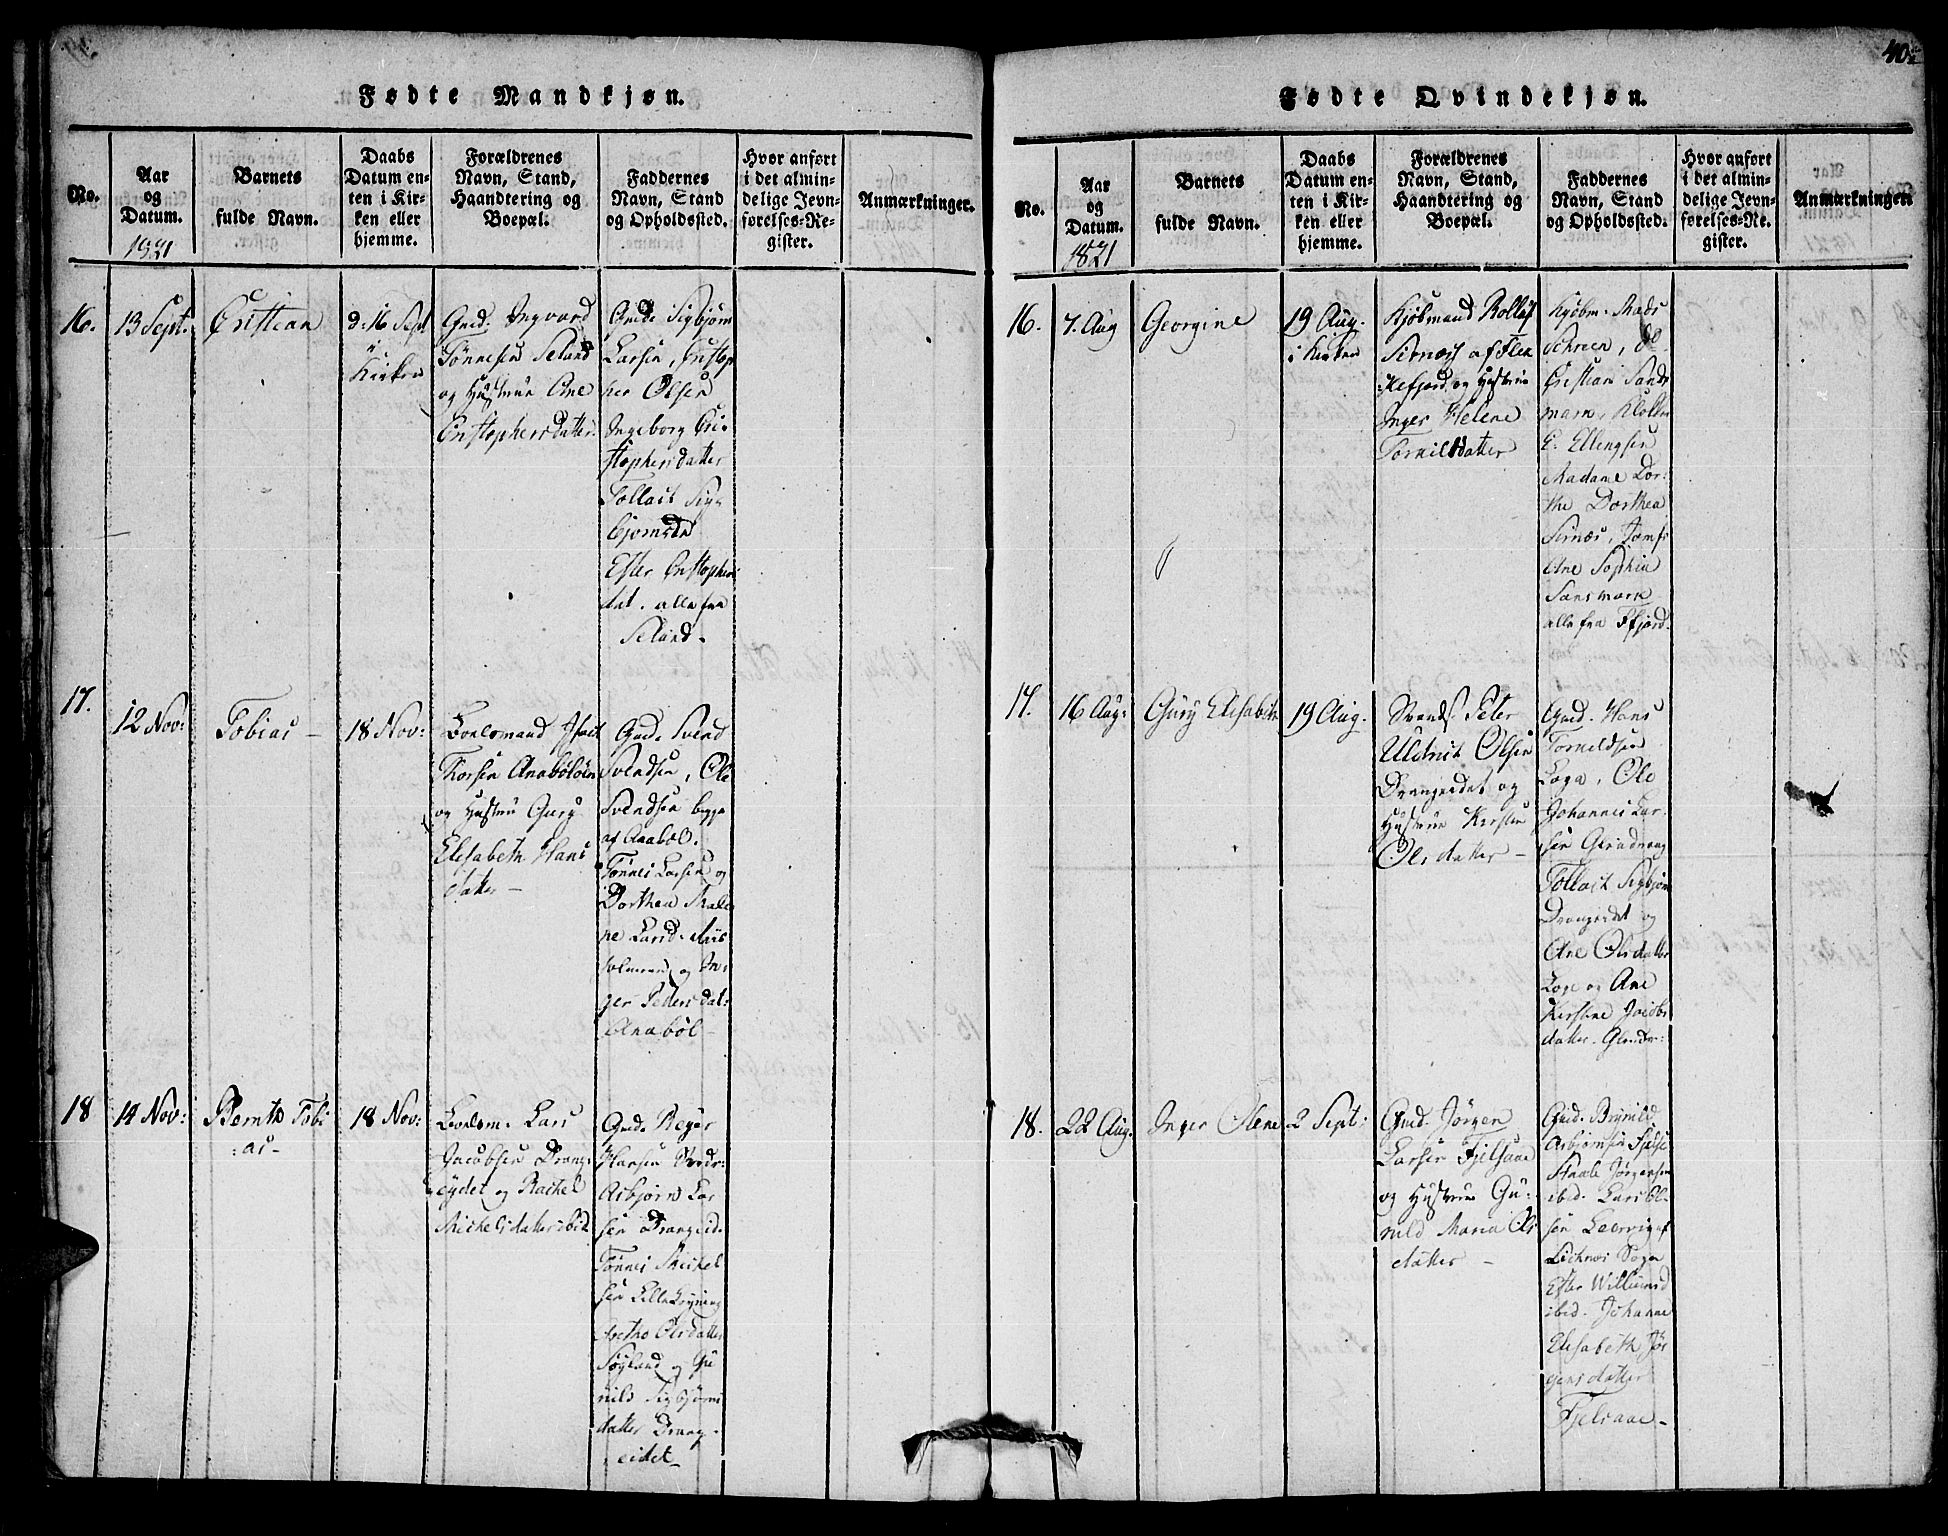 40
Fødte Mandkjøn.
No.
Aar
og
Datum.
1821
Barnets
fulde Navn.
Daabs
Datum en-
ten i Kir-
ken eller
hjemme.
Forældrenes
Navn, Stand,
Haandtering og
Boepæl.
Faddernes
Navn, Stand
og Opholdssted.
Hvor anført
i det almin-
delige Jevn-
førelses-Re-
gister.
Anmærkninger.
16.
13 Sept.
Cristian
d: 16 Sept
i
Kirken
Gmd. Ingvard
Tønnesen Seland
og Hustrue Ane
Cristophersdatter
Gmd. Sigbjørn
Larsen, Cristop
her Olsen
Ingeborg Cri-
stophersdatter
Tollait Sig-
bjornsen
Ester Cristophers
dat. alle fra
Seland.
17.
12 Nov:
Tobias
18 Nov:
Lonlsmand
Thorsen Anabøløen
og Hustrue Gury
Elisabeth Hans
datter
Gmd. Svend
Svendsen, Ole
Svendsen begge
af Anabøl.
Tønnes Larsen og
Dorthea Male-
ne Larsd.
og In-
ger Pedersdat:
Anabøl
18
14 Nov:
Bernth Tobi
:as-
18 Nov:
Lars
Jacobsen Drang-
eydet og Rachel
Michelsdatter ibid
Gmd. Reyer
Hansen
Asbjørn Lar
sen Drangeid.
Tønnes Michel
sen
Olsdatter
Søyland og Gu
nild Sigbjørns
datter Drang-
eidet
Fødte Qvindekjøn.
No.
Aar
og
Datum.
1821
Barnets
fulde Navn.
Daabs
Datum en-
ten i Kir-
ken eller
hjemme.
Forældrenes
Navn, Stand,
Haandtering og
Boepæl.
Faddernes
Navn, Stand
og Opholdssted.
Hvor anført
i det almin-
delige Jevn-
førelses-Re-
gister.
Anmærkninger.
16.
7. Aug
Georgine
19 Aug.
i Kirken
Kjøbmand Rollaf
Sirnæs af Flek
:kefjord og Hustrue
Inger Helene
Tornilsdatter
Kjøbm. Mads
Schreen, do
Cristian Sands
mark,
E. Ellingsen
Madame Dor:
the Dorthea
Sirnæs, Jomf:
Ane Sophia
Sansmark
alle fra Ffjord.
17.
16 Aug:
Gury Elisabeth
19 Aug.
Peter
Uldrich Olsen
Drangeidet og
Hustrue Kirsten
Olsdatter
Gmd. Hans
Tornildsen
Loga, Ole
Johannes Lar-
sen
Tollait Sigbjørn
Drangeidet og
Ane Olsdatter
Loge og Ane
Kirstine Jacobs
datter.
18.
22 Aug.
Inger Olene
2 Sept:
Gmd. Jørgen
Larsen Fjelsaae
og Hustrue Gu-
nild Maria Ols
datter
Gmd. Brynild
Asbjørnsen
Staale Jørgensen
ibid. Lars Ol-
sen Leervig af
Sogn
Ester Willumsd
ibid. Johanne
Elisabeth Jør
gensdatter
Fjelsaae